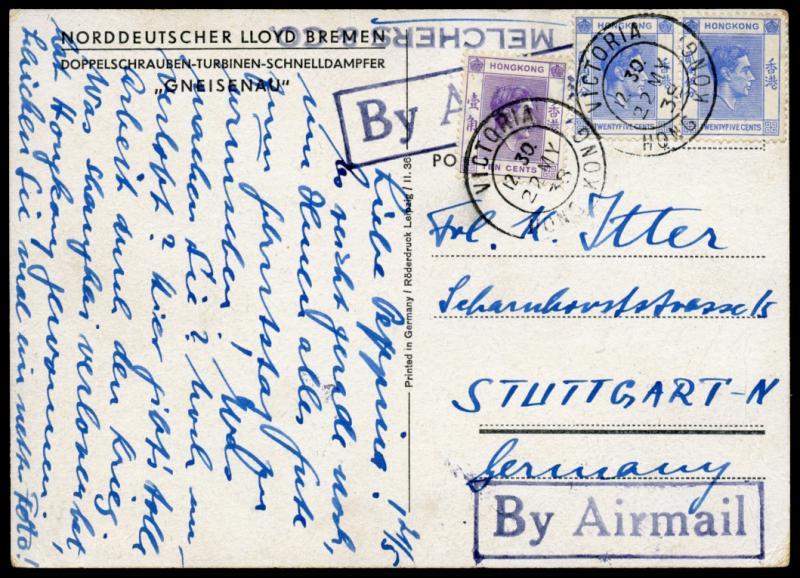 NORDDEUTSCHER LLOYD BREMEN
DOPPELSCHRAUBEN-TURBINEN-SCHNELLDAMPFER
„GNEISENAU”
MELCHERS & CO.
By A
HONGKONG
壹角
香港
TEN CENTS
HONGKONG
香港
TWENTYFIVE CENTS
HONGKONG
香港
TWENTYFIVE CENTS
VICTORIA
12.30
22 MY
38
HONG KONG
VICTORIA
12.30
22 MY
38
HONG KONG
PO
Printed in Germany / Röderdruck Leipzig / II. 36
21/5
Liebe Peppina!
Es reicht gerade noch,
um Ihnen alles Gute
zum
wünschen! Was
machen Sie? Noch un-
verlobt? Hier gibt's toll
Arbeit durch den Krieg.
Was Shanghai verloren hat,
hat Hongkong gewonnen.
Schicken Sie mal ein nettes Foto!
Frl. K. Itter
Scharnhorststrasse 15
STUTTGART-N
Germany
By Airmail